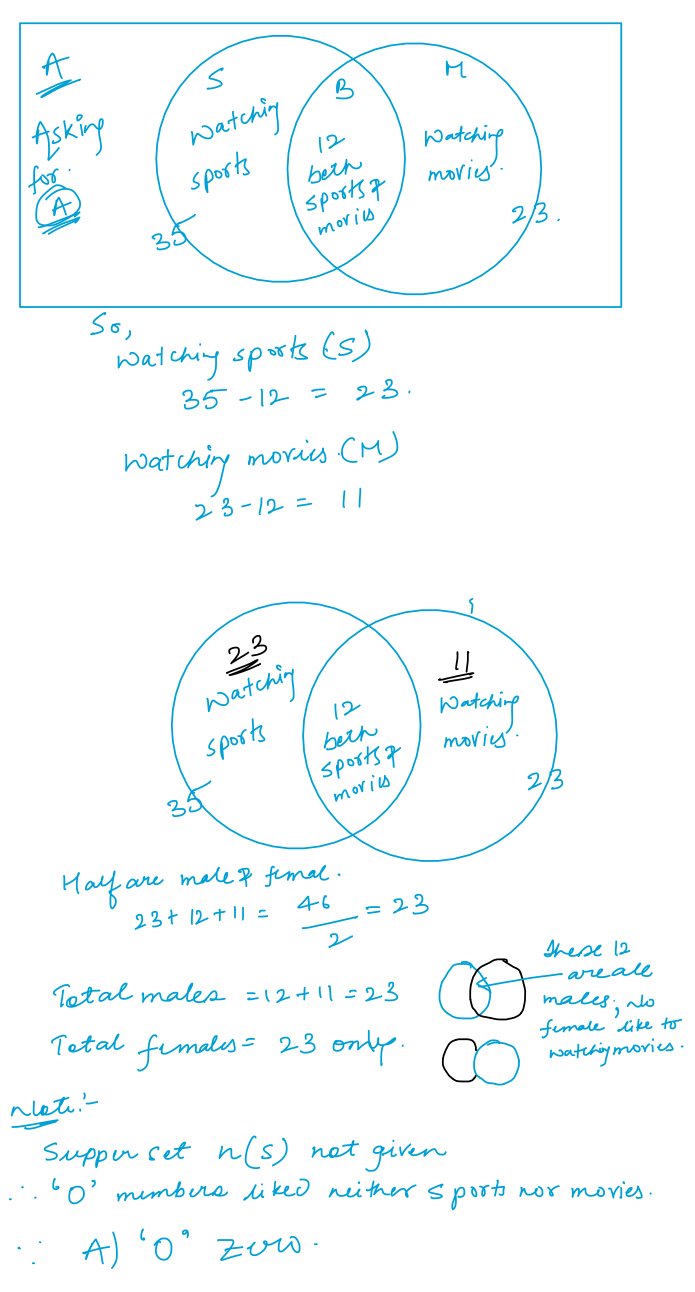 A
Asking
for.
A
S
Watching
sports
35
B
12
both
sports &
movies
M
Watching
movies.
23.
So,
Watching sports (S)
35 - 12 = 23.
Watching movies. (M)
23 - 12 = 11
23
Watching
sports
35
12
both
sports &
movies
11
Watching
movies.
23
Half are male & femal.
23 + 12 + 11 = 46/2 = 23
Total males = 12 + 11 = 23
Total females = 23 only.
These 12
are all
males, No
female like to
watching movies.
Note:-
Supper set n(s) not given
∴ '0' members liked neither sports nor movies.
∵ A) '0' Zero.